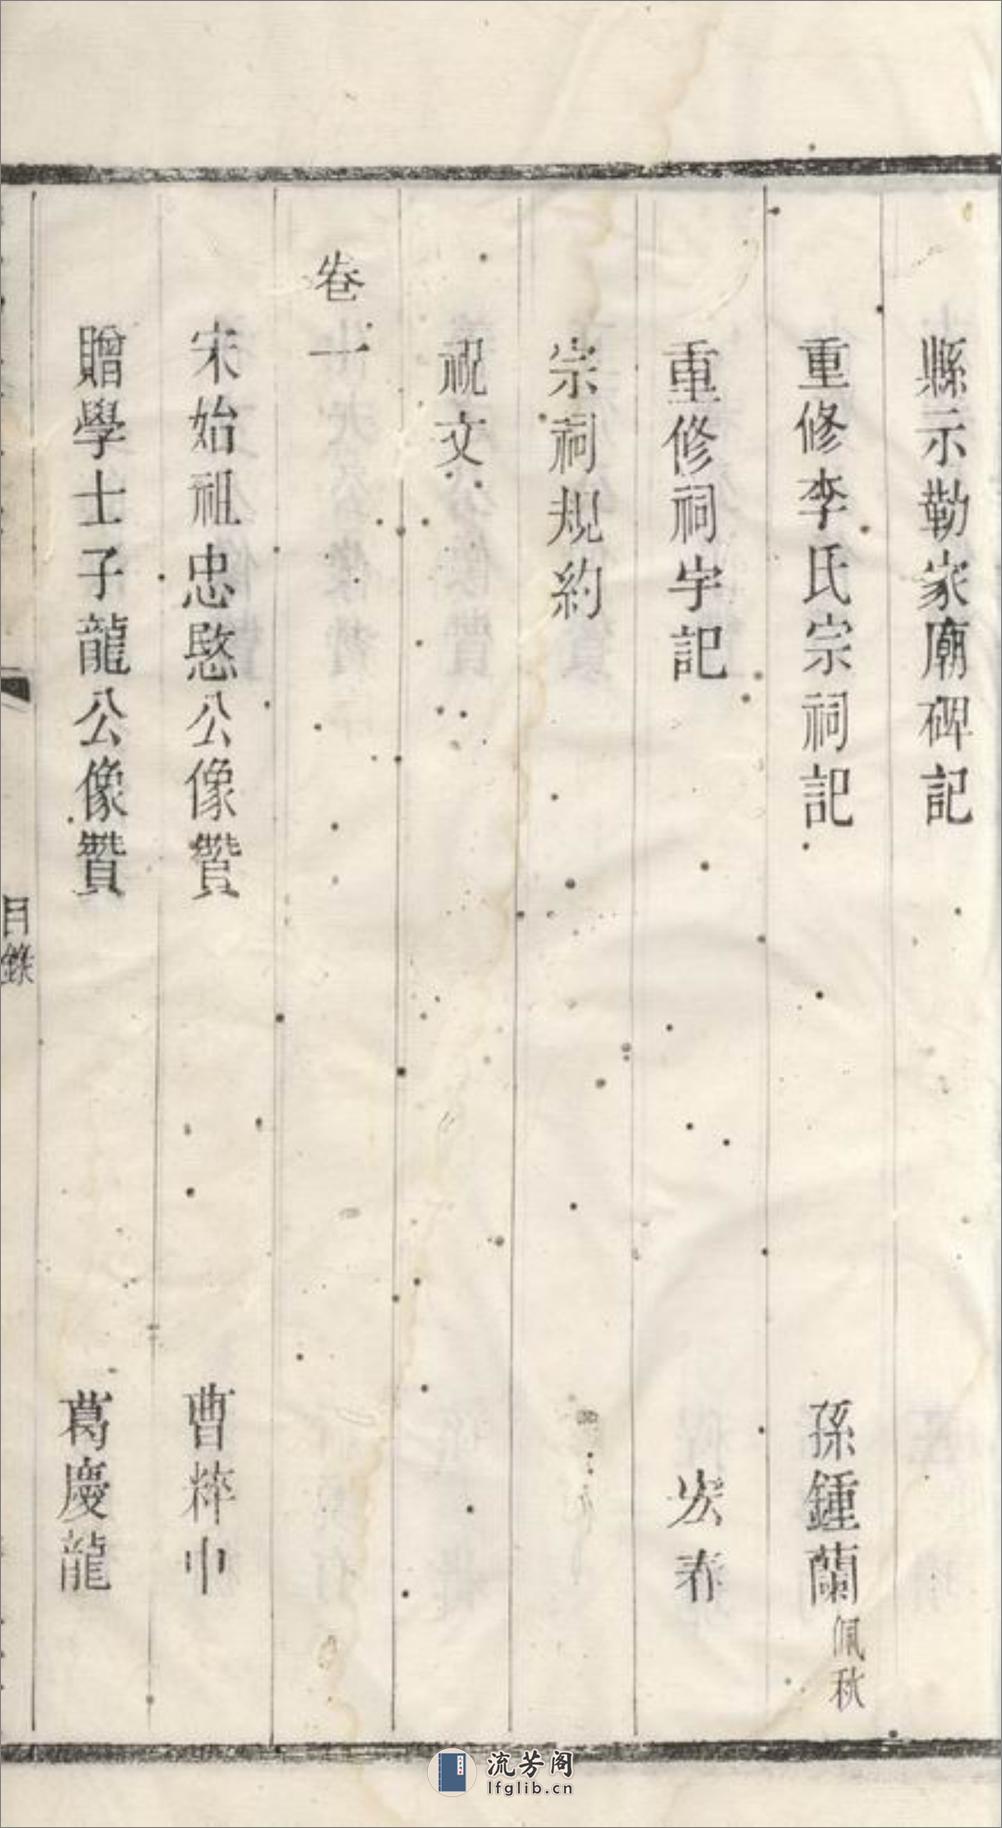 縣示勒家廟碑記
重修李氏宗祠記 孫鍾蘭佩秋
重修祠宇記 宏春
宗祠規約
祝文
卷一
宋始祖忠愍公像贊 曹粹中
贈學士子龍公像贊 葛慶龍
目錄
流芳阁
lfglib.cn